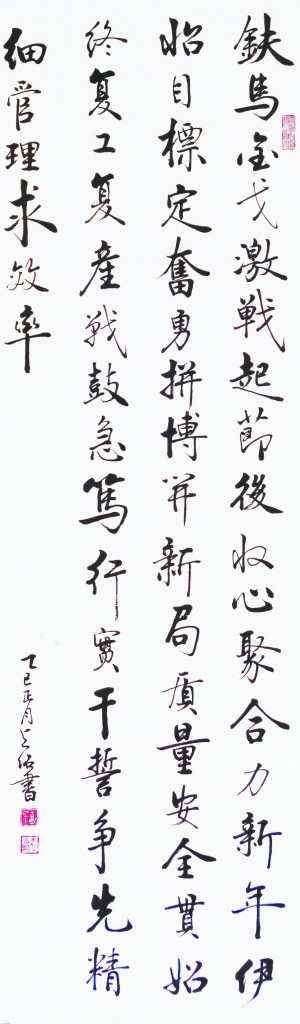 鉄馬金戈激戦起節後收心聚合力新年伊
始目標定奮勇拼搏開新局质量安全貫始
终复工复産战鼓急篤行實干誓争先精
细管理求效率
乙巳正月 书